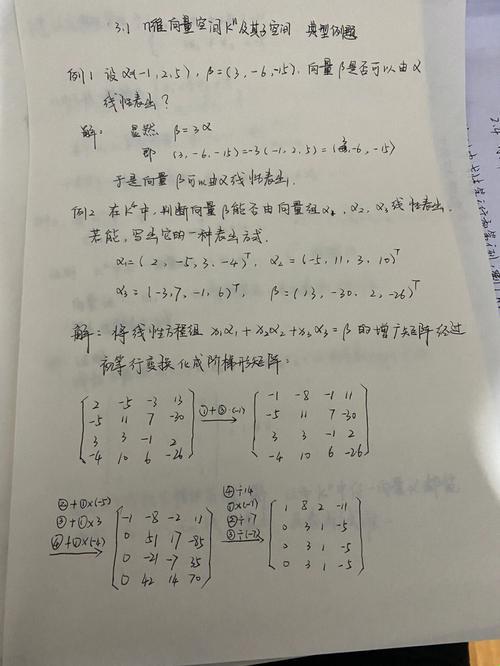 3.1 n维向量空间Kⁿ及其子空间 典型例题
例1 设α(-1,2,5), β=(3,-6,-15). 向量β是否可以由α
线性表出?
解: 显然 β=3α
即 (3,-6,-15)=-3(-1,2,5)=(3,-6,-15)
于是向量β可以由α线性表出.
例2 在K⁴中,判断向量β能否由向量组α₁,α₂,α₃线性表出.
若能,写出它的一种表出方式.
α₁=(2,-5,3,-4)ᵀ, α₂=(-5,11,3,10)ᵀ
α₃=(-3,7,-1,6)ᵀ, β=(13,-30,2,-26)ᵀ
解: 将线性方程组 x₁α₁+x₂α₂+x₃α₃=β的增广矩阵经过
初等行变换化成阶梯形矩阵:
2 -5 -3 13
-5 11 7 -30
3 3 -1 2
-4 10 6 -26
①+③·(-1)
-1 -8 -1 11
-5 11 7 -30
3 3 -1 2
-4 10 6 -26
②+①×(-5)
③+①×3
④+①×(-4)
-1 -8 -2 11
0 51 17 -85
0 -21 -7 35
0 42 14 70
④÷14
①×(-1)
②÷17
③÷(-7)
1 8 2 -11
0 3 1 -5
0 3 1 -5
0 3 1 -5